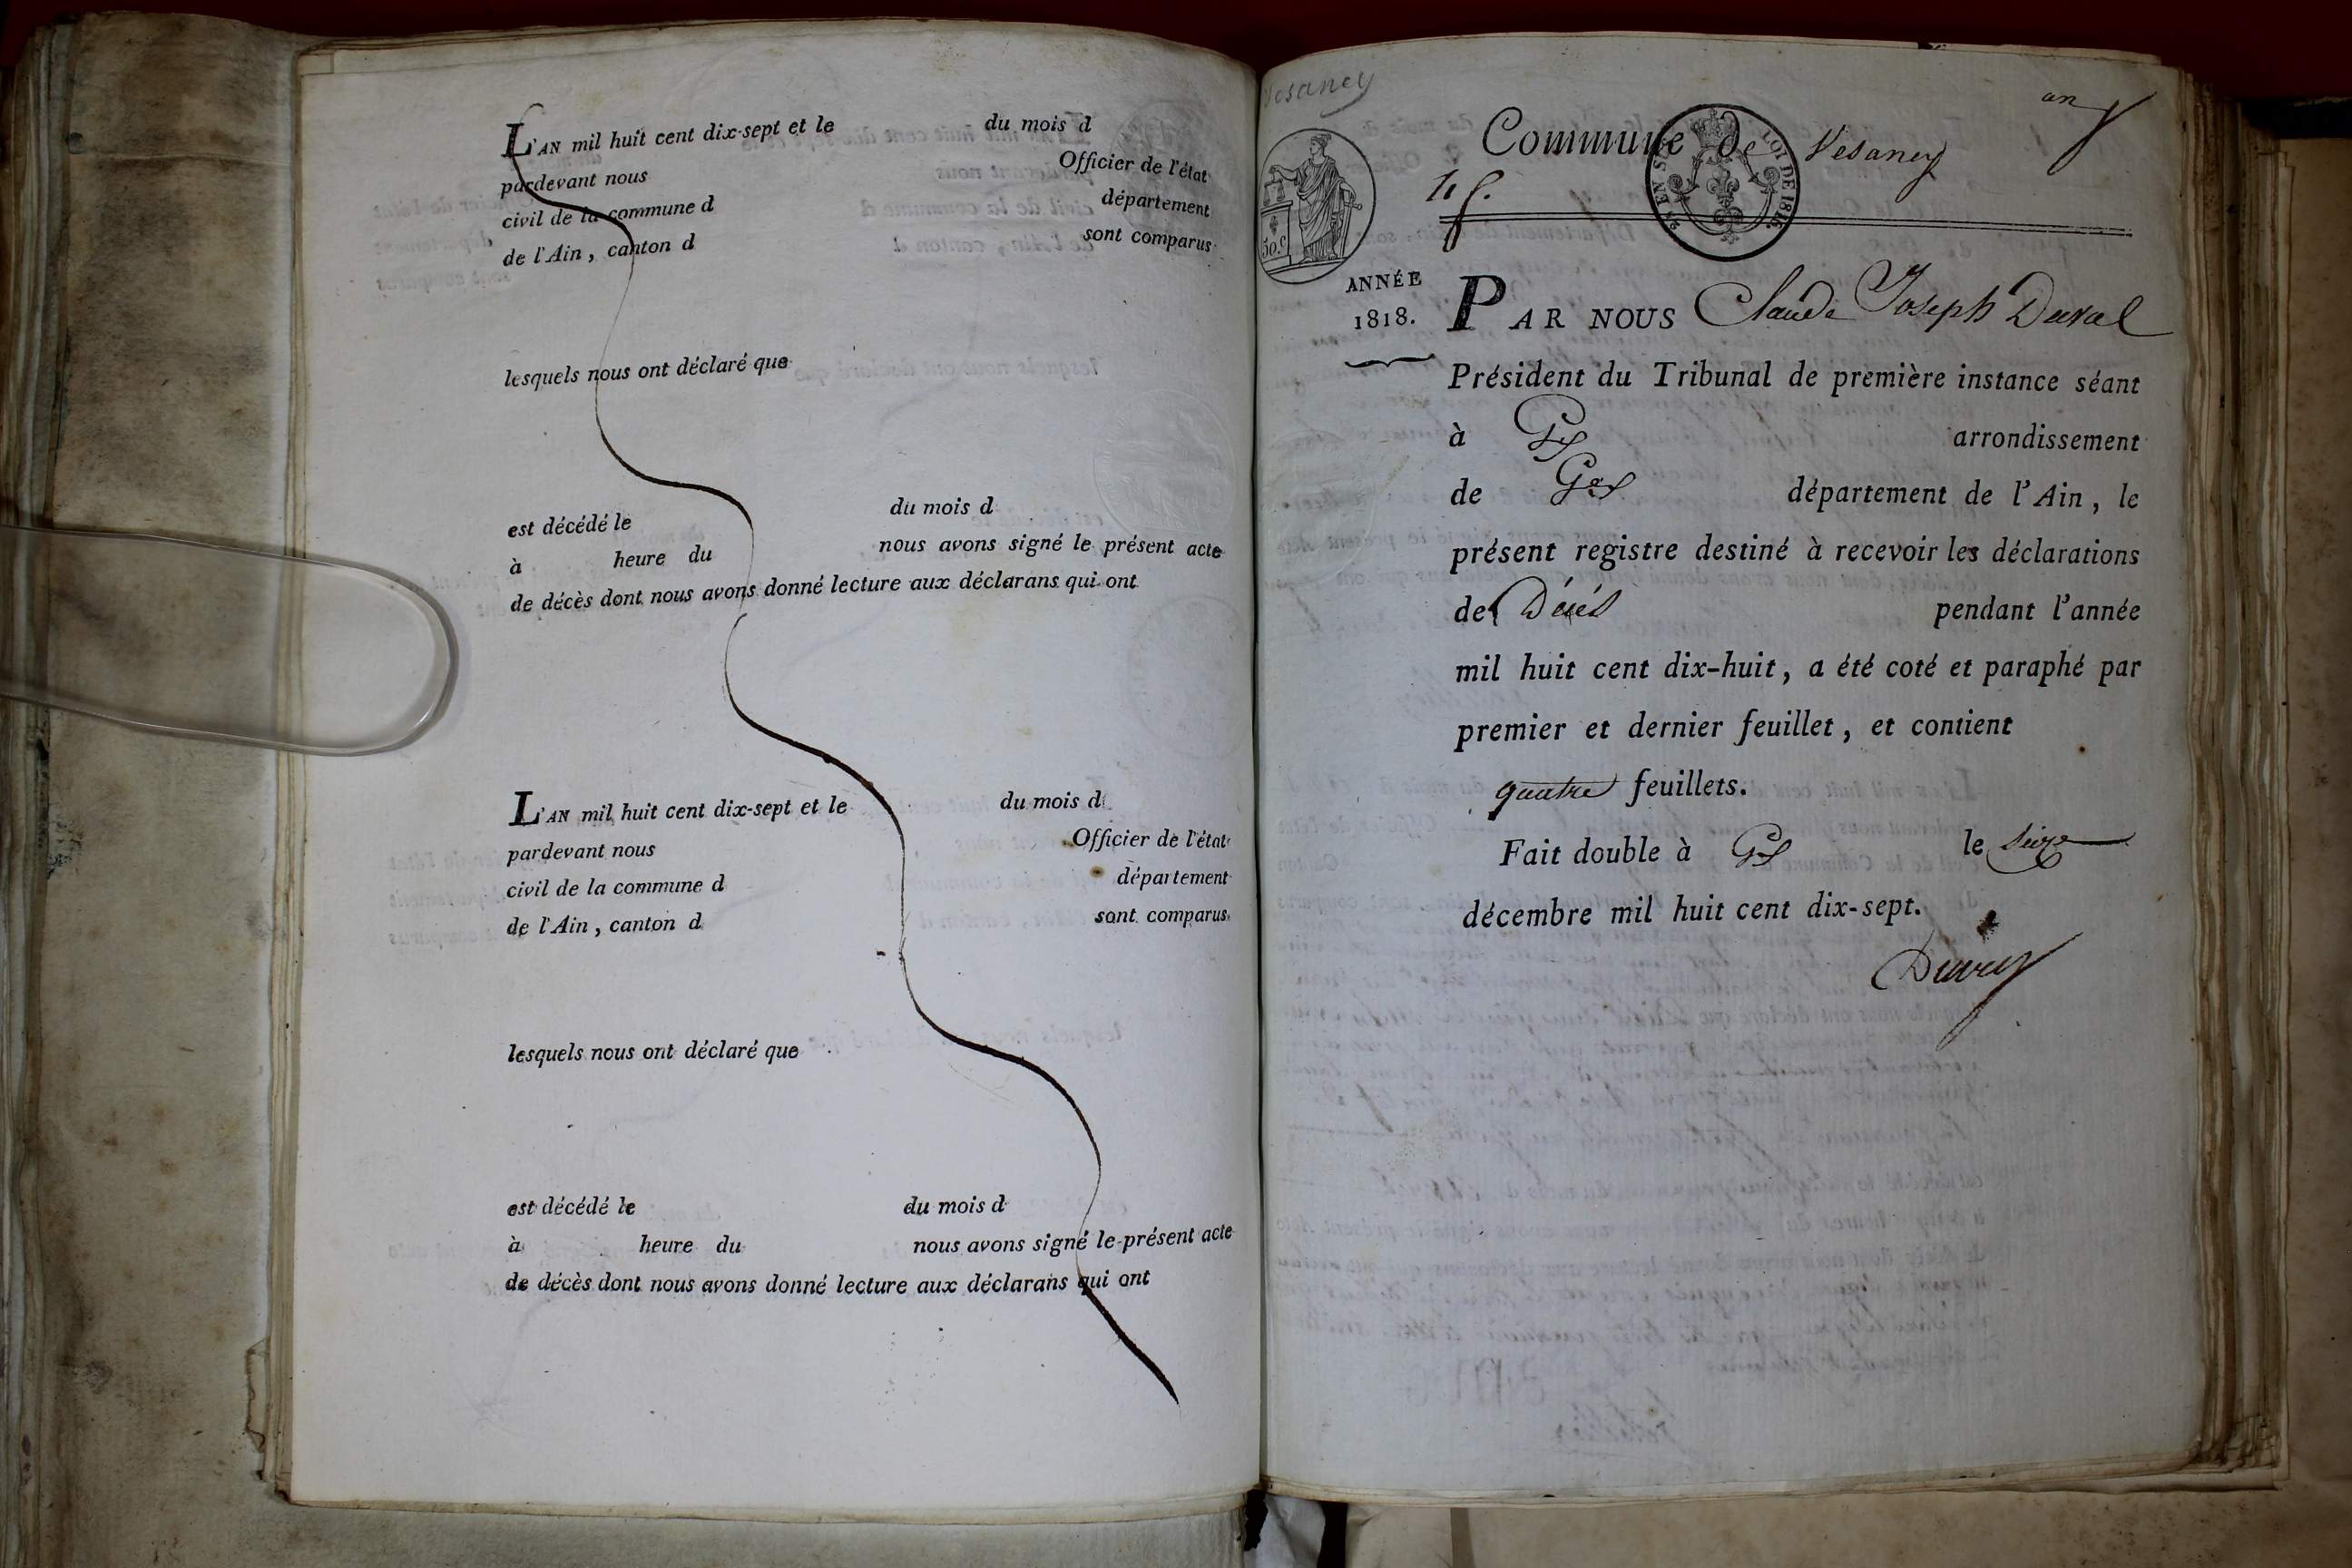 L'AN mil huit cent dix-sept et le du mois d
pardevant nous Officier de l'état
civil de la commune d département
de l'Ain, canton d sont comparus
lesquels nous ont déclaré que
est décédé le du mois d
à heure du nous avons signé le présent acte
de décès dont nous avons donné lecture aux déclarans qui ont
L'AN mil huit cent dix-sept et le du mois d
pardevant nous Officier de l'état
civil de la commune d département
de l'Ain, canton d sont comparus
lesquels nous ont déclaré que
est décédé le du mois d
à heure du nous avons signé le présent acte
de décès dont nous avons donné lecture aux déclarans qui ont
Vesancy
Commune de Vesancy
50.c
LOI DE 1816
ANNÉE
1818.
PAR NOUS Claude Joseph Duval
Président du Tribunal de première instance séant
à Gex arrondissement
de Gex département de l'Ain, le
présent registre destiné à recevoir les déclarations
de Décés pendant l'année
mil huit cent dix-huit, a été coté et paraphé par
premier et dernier feuillet, et contient
quatre feuillets.
Fait double à Gex le
décembre mil huit cent dix-sept.